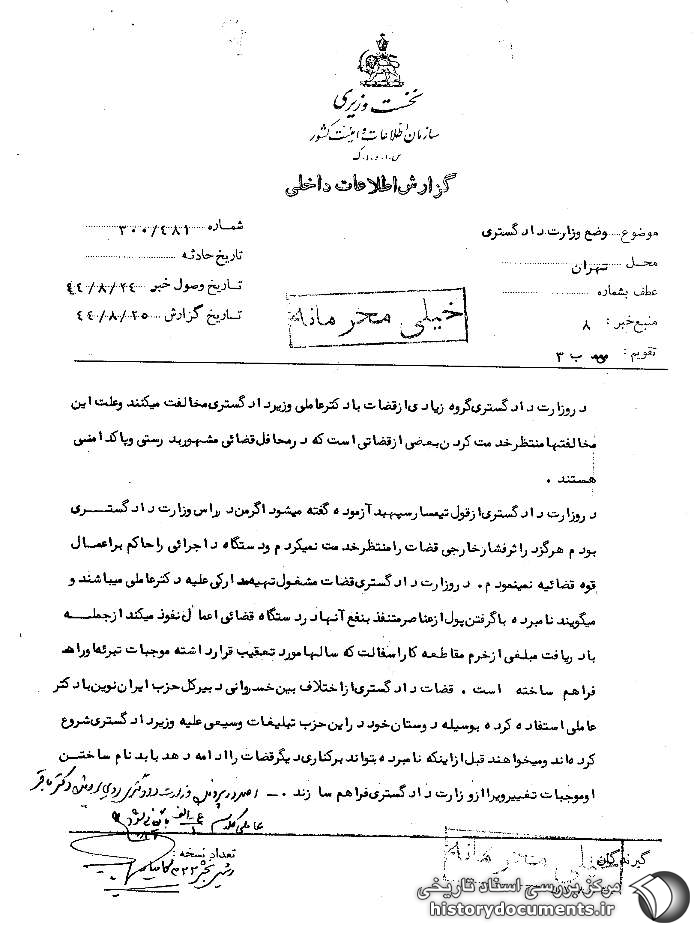 نخست وزیری
سازمان اطلاعات و امنیت کشور
س.ا.و.ا.ک
گزارش اطلاعات داخلی
موضوع وضع وزارت دادگستری
محل تهران
عطف بشماره
منبع خبر : ۸
تقویم : ب ۳
شماره ۳۰۰/۴۸۱
تاریخ حادثه
تاریخ وصول خبر ۴۴/۸/۲۴
تاریخ گزارش ۴۴/۸/۲۵
خیلی محرمانه
در وزارت دادگستری گروه زیادی از قضات با دکتر عاملی وزیر دادگستری مخالفت میکنند و علت این
مخالفتها منتظر خدمت کردن بعضی از قضاتی است که در محافل قضائی مشهور بدرستی و پاکدامنی
هستند .
در وزارت دادگستری از قول تیمسار سپهبد آزموده گفته میشود اگر من در راس وزارت دادگستری
بودم هرگز در اثر فشار خارجی قضات را منتظر خدمت نمیکردم و دستگاه اجرائی را حاکم بر اعمال
قوه قضائیه نمینمودم . در وزارت دادگستری قضات مشغول تهیه مدارکی علیه دکتر عاملی میباشند و
میگویند نامبرده با گرفتن پول از عناصر متنفذ بنفع آنها در دستگاه قضائی اعمال نفوذ میکند از جمله
با دریافت مبلغی از خرم مقاطعه کار اسفالت که سالها مورد تعقیب قرار داشته موجبات تبرئه او را هم
فراهم ساخته است . قضات دادگستری از اختلاف بین خسروانی دبیر کل حزب ایران نوین با دکتر
عاملی استفاده کرده بوسیله دوستان خود در این حزب تبلیغات وسیعی علیه وزیر دادگستری شروع
کرده اند و میخواهند قبل از اینکه نامبرده بتواند برکناری دیگر قضات را ادامه دهد با بدنام ساختن
او موجبات تغییر ویرا از وزارت دادگستری فراهم سازند . ـ
عاملی
گیرندگان
خیلی محرمانه
تعداد نسخه :
مرکز بررسی اسناد تاریخی
historydocuments.ir